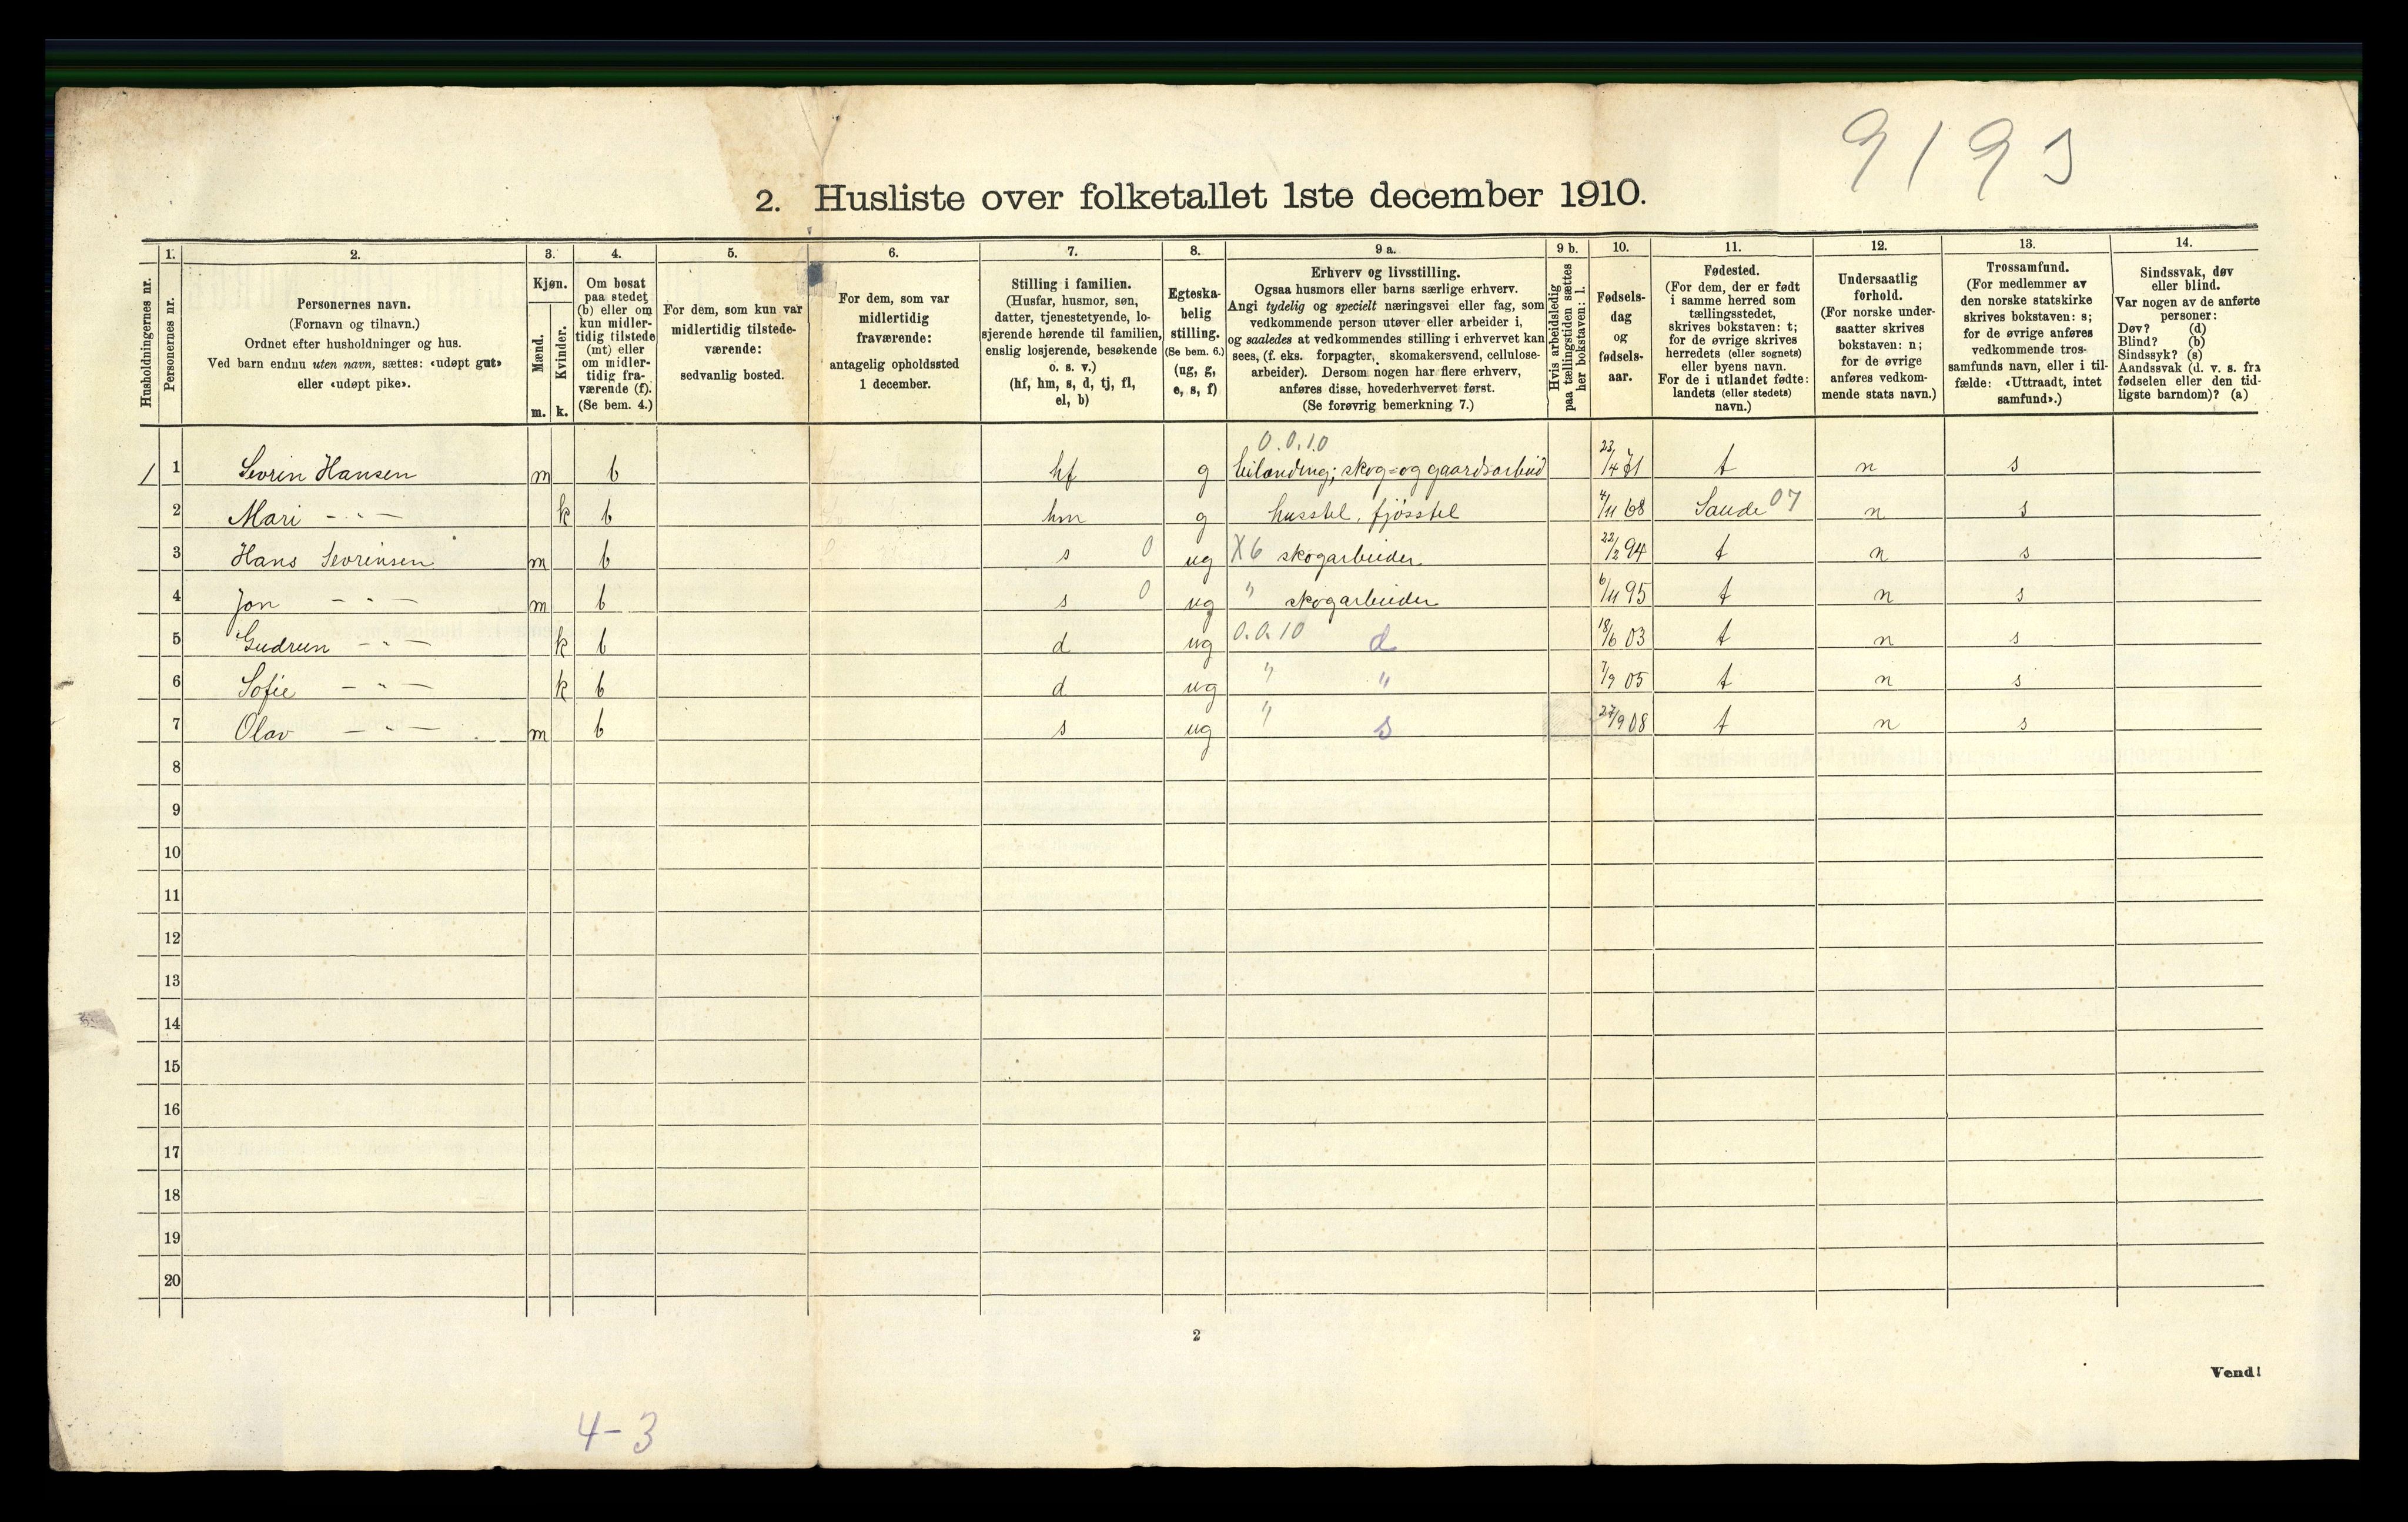 9193
2. Husliste over folketallet 1ste december 1910.
Husholdningernes nr.
1.
Personernes nr.
2.
Personernes navn.
(Fornavn og tilnavn.)
Ordnet efter husholdninger og hus.
Ved barn endnu uten navn, sættes: «udøpt gut»
eller «udøpt pike».
3.
Kjøn.
Mænd.
Kvinder.
m. k.
4.
Om bosat
paa stedet
(b) eller om
kun midler-
tidig tilstede
(mt) eller
om midler-
tidig fra-
værende (f).
(Se bem. 4.)
5.
For dem, som kun var
midlertidig tilstede-
værende:
sedvanlig bosted.
6.
For dem, som var
midlertidig
fraværende:
antagelig opholdssted
1 december.
7.
Stilling i familien.
(Husfar, husmor, søn,
datter, tjenestetyende, lo-
sjerende hørende til familien,
enslig losjerende, besøkende
o. s. v.)
(hf, hm, s, d, tj, fl,
el, b)
8.
Egteska-
belig
stilling.
(Se bem. 6.)
(ug, g,
e, s, f)
9 a.
Erhverv og livsstilling.
Ogsaa husmors eller barns særlige erhverv.
Angi tydelig og specielt næringsvei eller fag, som
vedkommende person utøver eller arbeider i,
og saaledes at vedkommendes stilling i erhvervet kan
sees, (f. eks. forpagter, skomakersvend, cellulose-
arbeider). Dersom nogen har flere erhverv,
anføres disse, hovederhvervet først.
(Se forøvrig bemerkning 7.)
9 b.
Hvis arbeidsledig
paa tællingstiden sættes
her bokstaven: l.
10.
Fødsels-
dag
og
fødsels-
aar.
11.
Fødested.
(For dem, der er født
i samme herred som
tællingsstedet,
skrives bokstaven: t;
for de øvrige skrives
herredets (eller sognets)
eller byens navn.
For de i utlandet fødte:
landets (eller stedets)
navn.)
12.
Undersaatlig
forhold.
(For norske under-
saatter skrives
bokstaven: n;
for de øvrige
anføres vedkom-
mende stats navn.)
13.
Trossamfund.
(For medlemmer av
den norske statskirke
skrives bokstaven: s;
for de øvrige anføres
vedkommende tros-
samfunds navn, eller i til-
fælde: «Uttraadt, intet
samfund».)
14.
Sindssvak, døv
eller blind.
Var nogen av de anførte
personer:
Døv? (d)
Blind? (b)
Sindssyk? (s)
Aandssvak (d. v. s. fra
fødselen eller den tid-
ligste barndom)? (a)
0.0.10
1 1 Sevrin Hansen m b hf g leilænding; skog= og gaardsarbeid 23/4 71 t n s
2 Mari - " - k b hm g husstel, fjösstel 4/11 68 Saude 07 n s
3 Hans Sevrinsen m b s 0 ug X6 skogarbeider 22/2 94 t n s
4 Jon - " - m b s 0 ug " skogarbeider 6/11 95 t n s
5 Gudrun - " - k b d ug 0.0.10 d 18/6 03 t n s
6 Sofie - " - k b d ug " " 7/9 05 t n s
7 Olav - " - m b s ug " s 27/9 08 t n s
8
9
10
11
12
13
14
15
16
17
18
19
20
2
Vend!
4-3